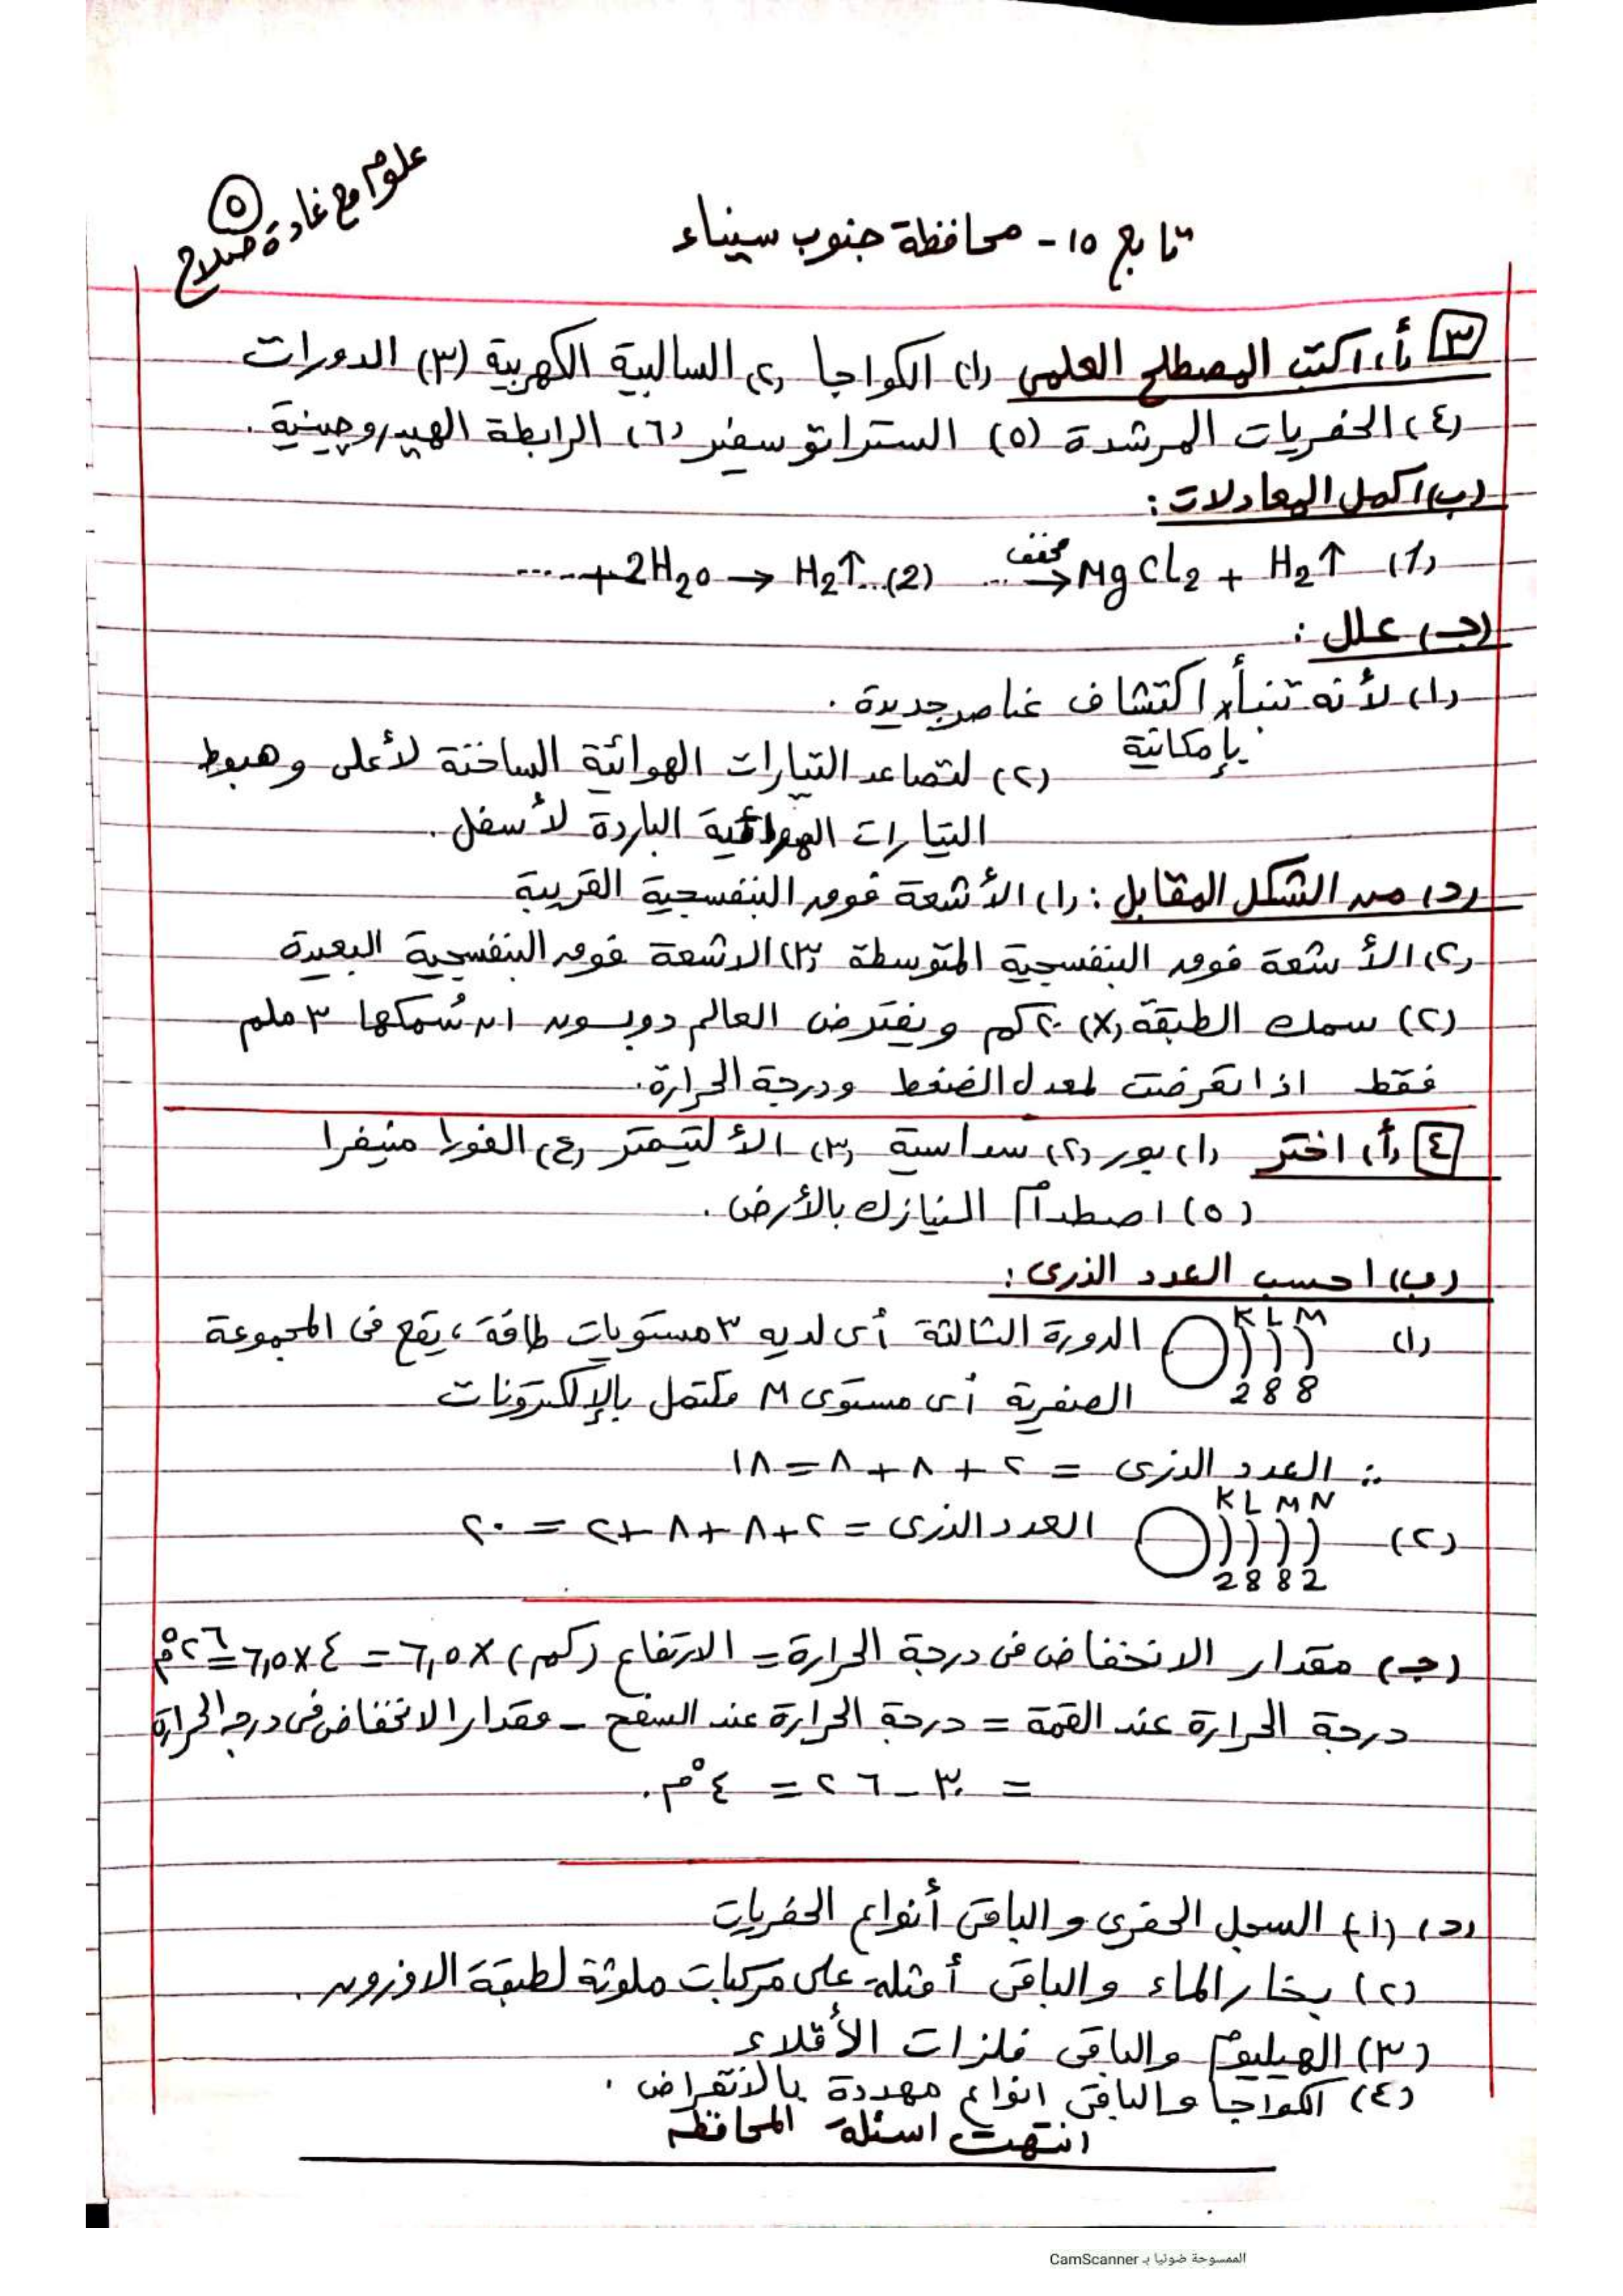 علوم مع غادة صلاح
٥
تابع ١٥ - محافظة جنوب سيناء
٣ (أ) اكتب المصطلح العلمى (١) الكواجا (٢) السالبية الكهربية (٣) الدورات
(٤) الحفريات المرشدة (٥) الستراتوسفير (٦) الرابطة الهيدروجينية .
(ب) اكمل المعادلات :
(1) MgCl2 + H2↑ ←مخفف ... (2) .... + 2H2O → H2↑ ...
(جـ) علل :
(١) لأنه تنبأ اكتشاف عناصر جديدة .
بإمكانية
(٢) لتصاعد التيارات الهوائية الساخنة لأعلى وهبوط
التيارات الهوائية الباردة لأسفل .
(د) من الشكل المقابل : (١) الأشعة فوق البنفسجية القريبة
(٢) الأشعة فوق البنفسجية المتوسطة (٣) الاشعة فوق البنفسجية البعيدة
(٢) سمك الطبقة (X) ٢٠ كم ويفترض العالم دوبسون ان سُمكها ٣ ملم
فقط اذا تعرضت لمعدل الضغط ودرجة الحرارة .
٤ (أ) اختر (١) بور (٢) سداسية (٣) الألتيمتر (٤) الفورا منيفرا
(٥) اصطدام النيازك بالأرض .
(ب) احسب العدد الذرى :
K L M
(١) الدورة الثالثة أى لديه ٣ مستويات طاقة ، يقع فى المجموعة
2 8 8
الصفرية أى مستوى M مكتمل بالإلكترونات
∴ العدد الذرى = ٢ + ٨ + ٨ = ١٨
K L M N
(٢) العدد الذرى = ٢ + ٨ + ٨ + ٢ = ٢٠
2 8 8 2
(جـ) مقدار الانخفاض فى درجة الحرارة = الارتفاع (كم) × ٦,٥ = ٤ × ٦,٥ = ٢٦°م
درجة الحرارة عند القمة = درجة الحرارة عند السفح - مقدار الانخفاض فى درجة الحرارة
= ٣٠ - ٢٦ = ٤°م .
(د) (١) السجل الحفرى والباقى أنواع الحفريات
(٢) بخار الماء والباقى أمثلة على مركبات ملوثة لطبقة الاوزون .
(٣) الهيليوم والباقى فلزات الأقلاء
(٤) الكواجا والباقى انواع مهددة بالانقراض .
انتهت اسئلة المحافظة
الممسوحة ضوئيا بـ CamScanner